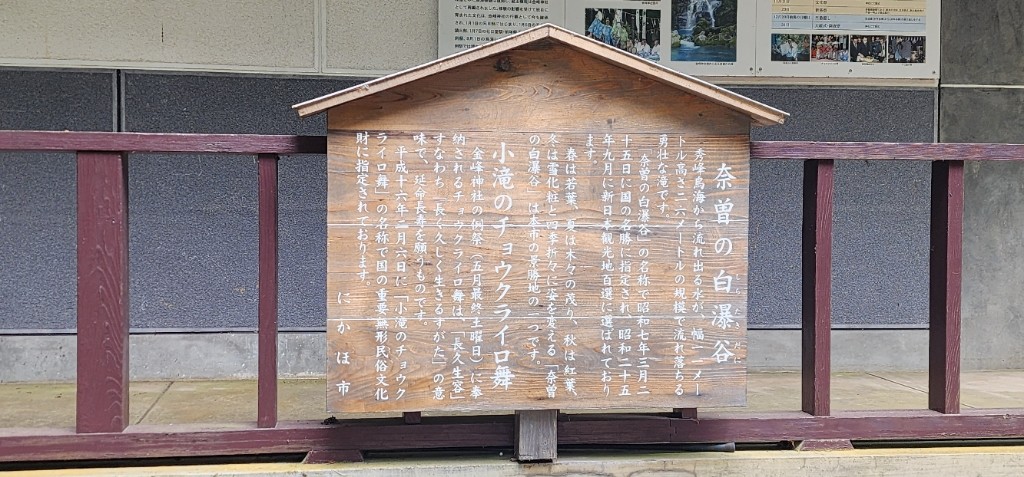 奈曽の白瀑谷
しら たき だに
秀峰鳥海から流れ出る水が、幅一一メー
トル高さ二六メートルの規模で流れ落ちる
勇壮な滝です。
「奈曽の白瀑谷」の名称で昭和七年三月二
十五日に国の名勝に指定され、昭和二十五
年九月に新日本観光地百選に選ばれており
ます。
春は若葉、夏は木々の茂り、秋は紅葉、
冬は雪化粧と四季折々に姿を変える「奈曽
の白瀑谷」は本市の景勝地の一つです。
小滝のチョウクライロ舞
金峰神社の例祭（五月最終土曜日）に奉
納されるチョウクライロ舞は、「長久生容」
すなわち「長く久しく生きるすがた」の意
味で、延命長寿を願うものです。
平成十六年二月六日に「小滝のチョウク
ライロ舞」の名称で国の重要無形民俗文化
財に指定されております。
にかほ市